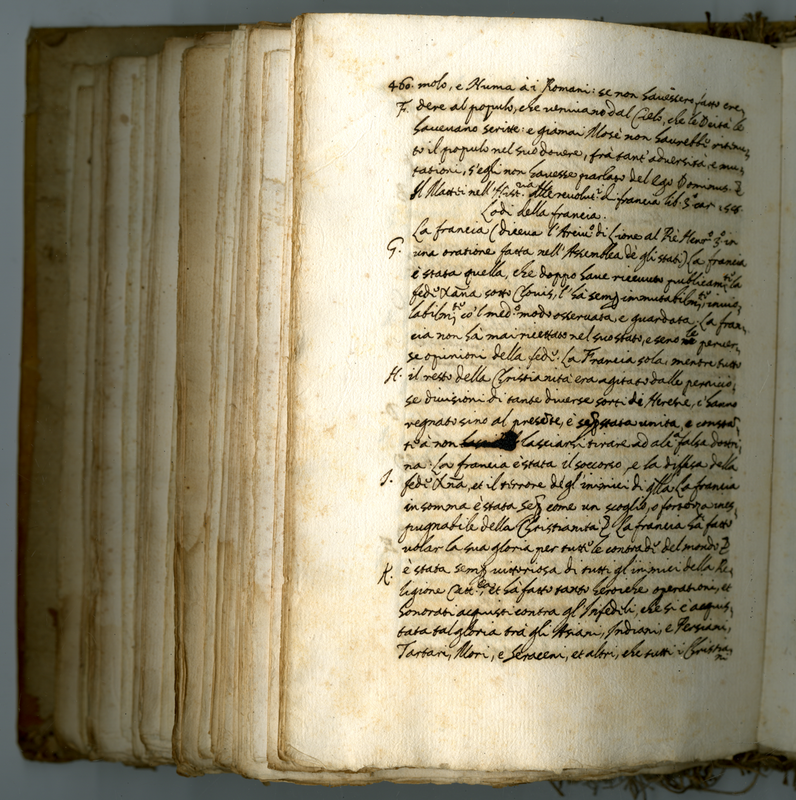 460. molo, e Numa à i Romani: se non havessero fatto cre,
F. dere al populo, che venivano dal Cielo, che le Deità le
havevano scritte: e giamai Mosè non havrebbe ritenu,
to il populo nel suo dovere, frà tant'adversità e mu,
tationi, s'egli non havesse parlato del ego Dominus.
Il Mattei nell'Hist. delle revolut. di francia lib. 3. car.
Lodi della francia.
La francia (diceva l'Arciv.o di Lione al Rè Hen.o 3.o in
G. una oratione fatta nell'Assemblea de gli stati) La francia
è stata quella, che doppo have ricevuto publicam.te la
fede Xana sotto Clovis, l'hà semp immutabilm.te, invio,
labilm.te co'l med.o modo osservata, e guardata. La fran,
cia non hà mai ricettato nel suo stato, e seno le perver,
se opinioni della fede. La Francia sola, mentre tutto
H. il resto della Christianità era agitato dalle pernicio,
se divisioni di tante diverse sorti de Heresie, c'hanno
regnato sino al presete, è semp stata unita, e costa,
te à non lasciarsi tirare ad alc.a falsa dottri,
na. La francia è stata il soccorso, e la difesa della
I. fede Xana, et il terrore de gl'inimici di qlla. La francia
in somma è stata semp come un scoglio, o fortezza ines,
pugnabile della Christianità. La francia hà fatto
volar la sua gloria per tutte le contrade del mondo
K. è stata semp vittoriosa di tutti gl'inimici della Re,
ligione Catt.ca, et hà fatto tanto heroiche operationi, et
honorati acquisti contra gl'Infedeli, che si è acquis,
tata tal gloria trà gli Asiani, Indiani, e Persiani,
Tartari, Mori, e Seraceni, et altri, che tutti i Christia,
ni